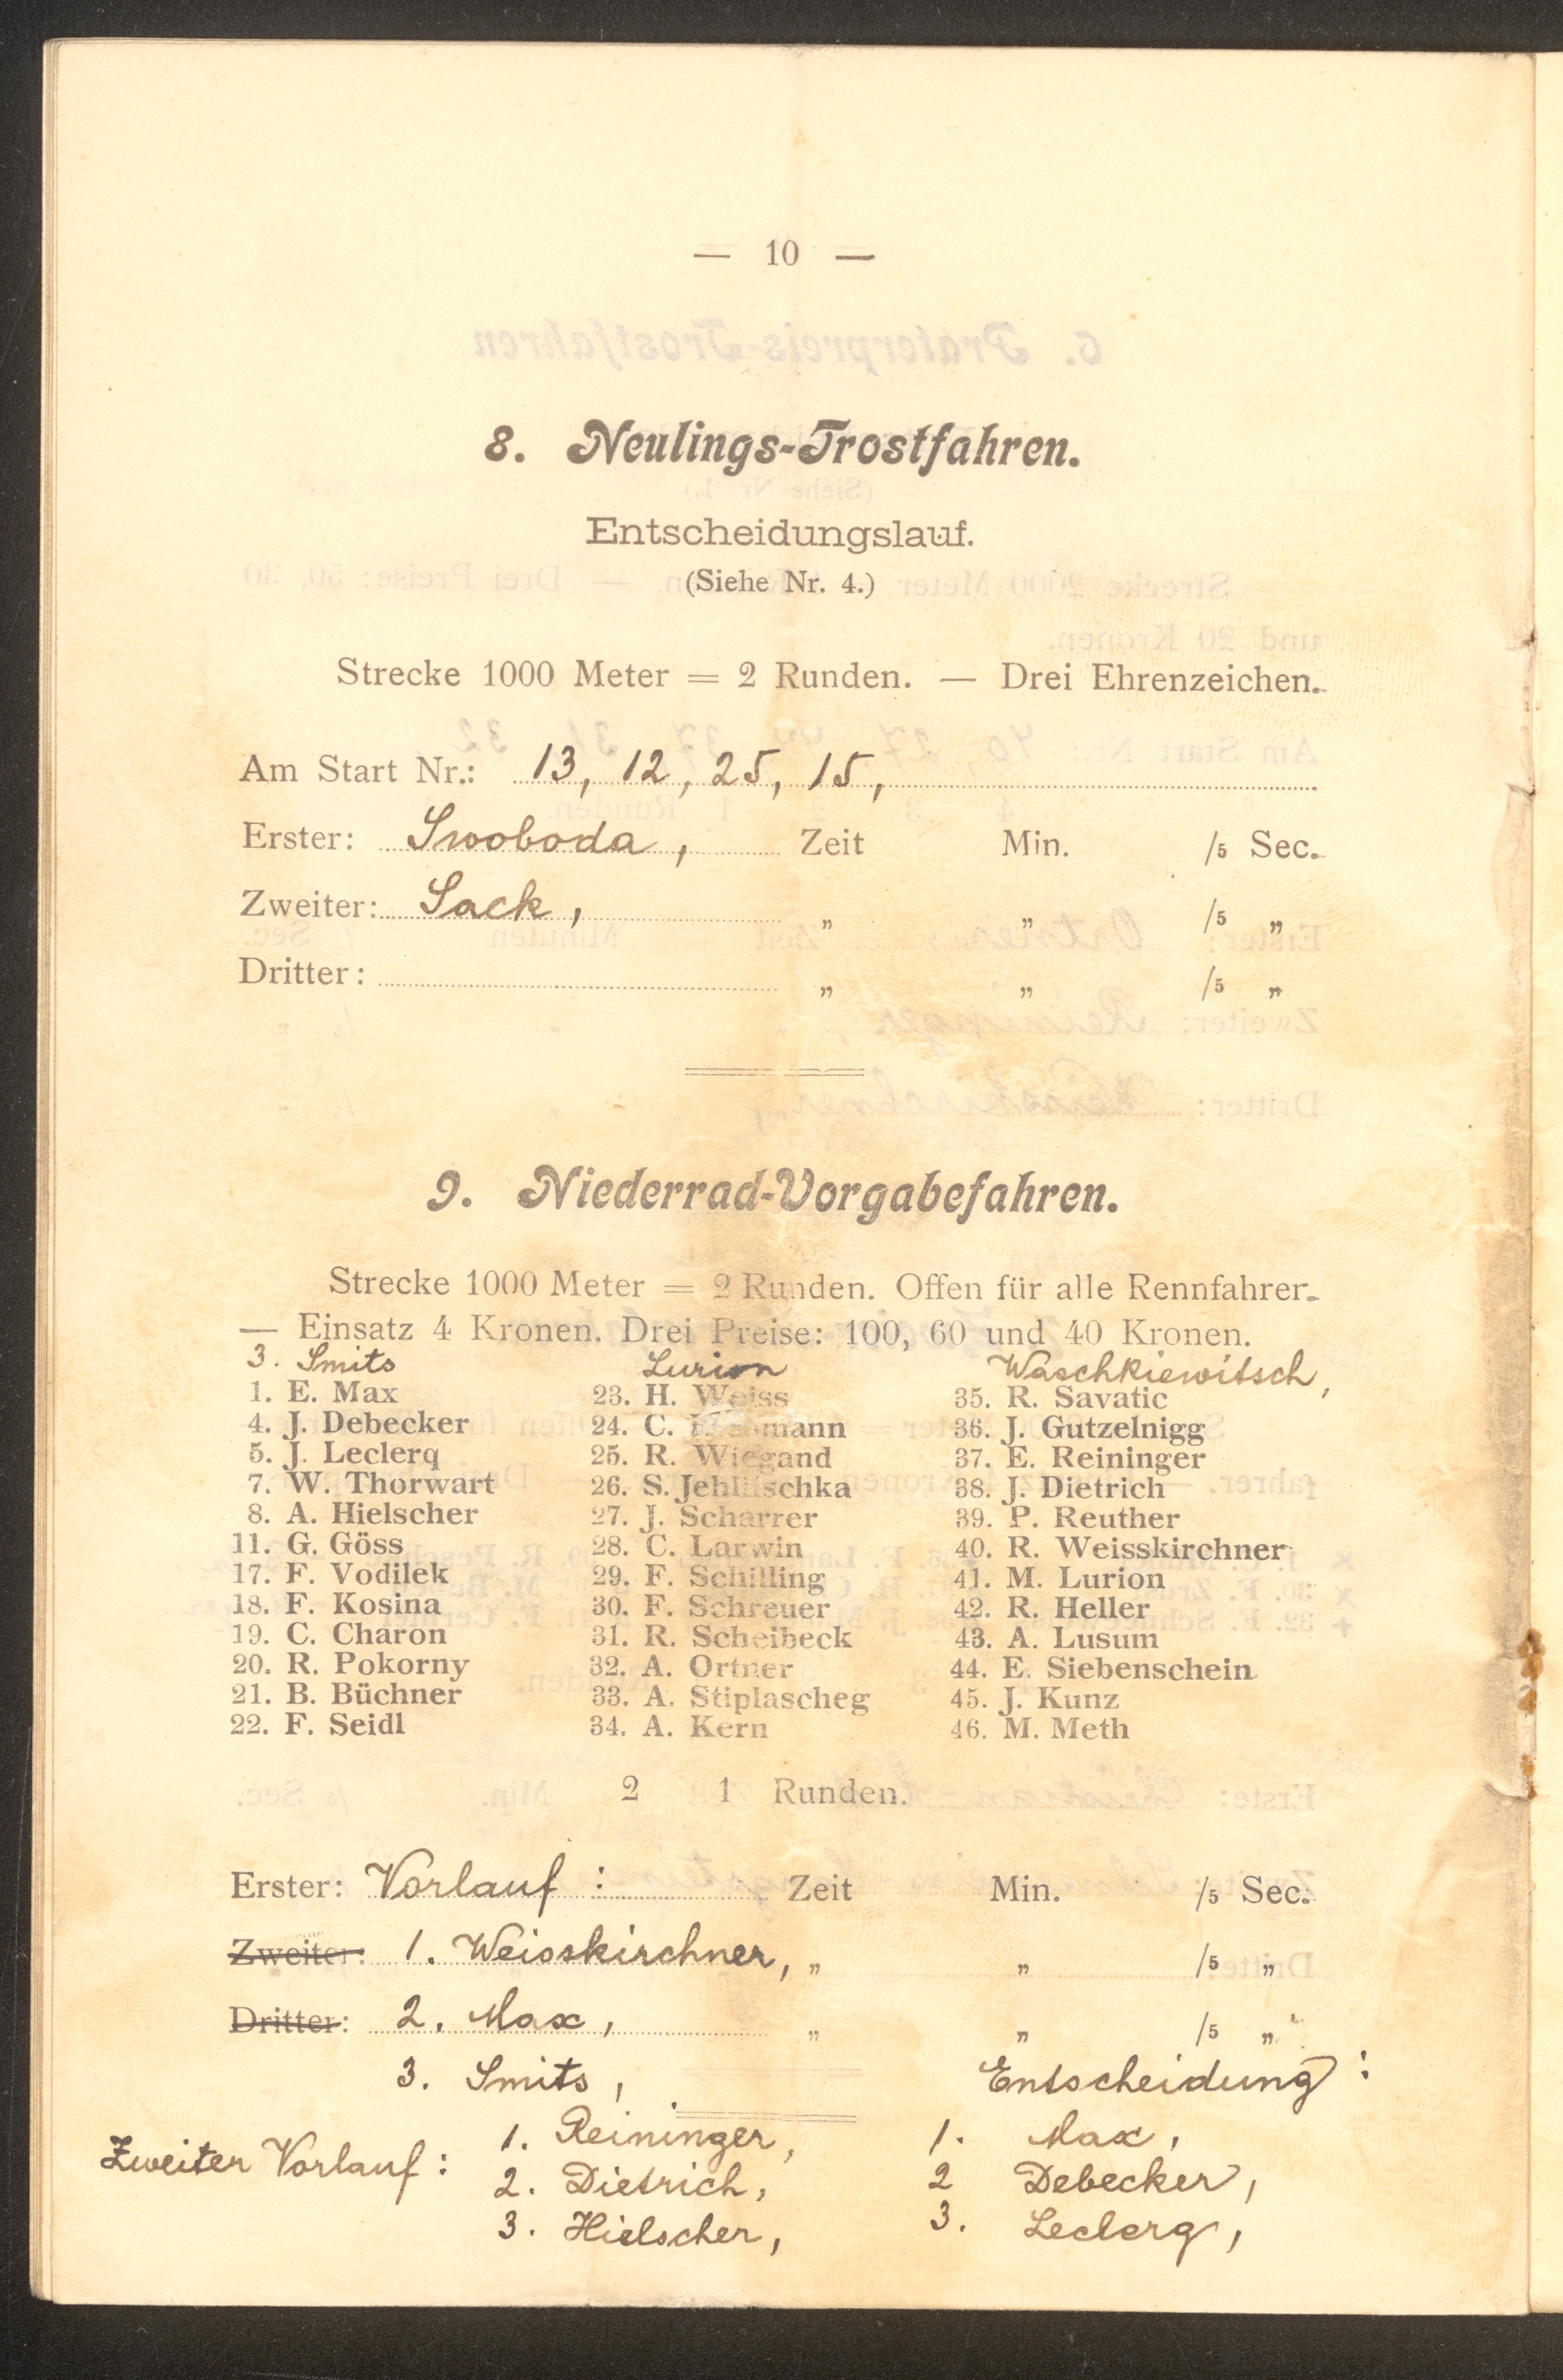 — 10 —
8. Neulings-Trostfahren.
Entscheidungslauf.
(Siehe Nr. 4.)
Strecke 1000 Meter = 2 Runden. — Drei Ehrenzeichen.
Am Start Nr.: 13, 12, 25, 15,
Erster: Swoboda, Zeit Min. /5 Sec.
Zweiter: Sack, „ „ /5 „
Dritter: „ „ /5 „
9. Niederrad-Vorgabefahren.
Strecke 1000 Meter = 2 Runden. Offen für alle Rennfahrer.
— Einsatz 4 Kronen. Drei Preise: 100, 60 und 40 Kronen.
3. Smits
1. E. Max
4. J. Debecker
5. J. Leclerq
7. W. Thorwart
8. A. Hielscher
11. G. Göss
17. F. Vodilek
18. F. Kosina
19. C. Charon
20. R. Pokorny
21. B. Büchner
22. F. Seidl
Lurion
23. H. Weiss
24. C.
25. R. Wiegand
26. S. Jehlitschka
27. J. Scharrer
28. C. Larwin
29. F. Schilling
30. F. Schreuer
31. R. Scheibeck
32. A. Ortner
33. A. Stiplascheg
34. A. Kern
Waschkiewitsch,
35. R. Savatic
36. J. Gutzelnigg
37. E. Reininger
38. J. Dietrich
39. P. Reuther
40. R. Weisskirchner
41. M. Lurion
42. R. Heller
43. A. Lusum
44. E. Siebenschein
45. J. Kunz
46. M. Meth
2 1 Runden.
Erster: Vorlauf: Zeit Min. /5 Sec.
Zweiter: 1. Weisskirchner, „ „ /5 „
Dritter: 2. Max, „ „ /5 „
3. Smits,
Zweiter Vorlauf:
1. Reininger,
2. Dietrich,
3. Hielscher,
Entscheidung:
1. Max,
2 Debecker,
3. Leclerq,